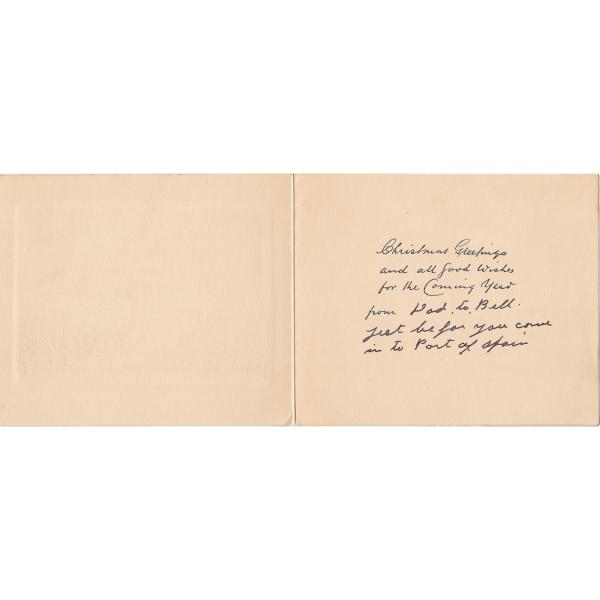 Christmas Greetings
and all Good Wishes
for the Coming Year
from Dad. to. Bell.
jest be for you come
in to Port of Spain